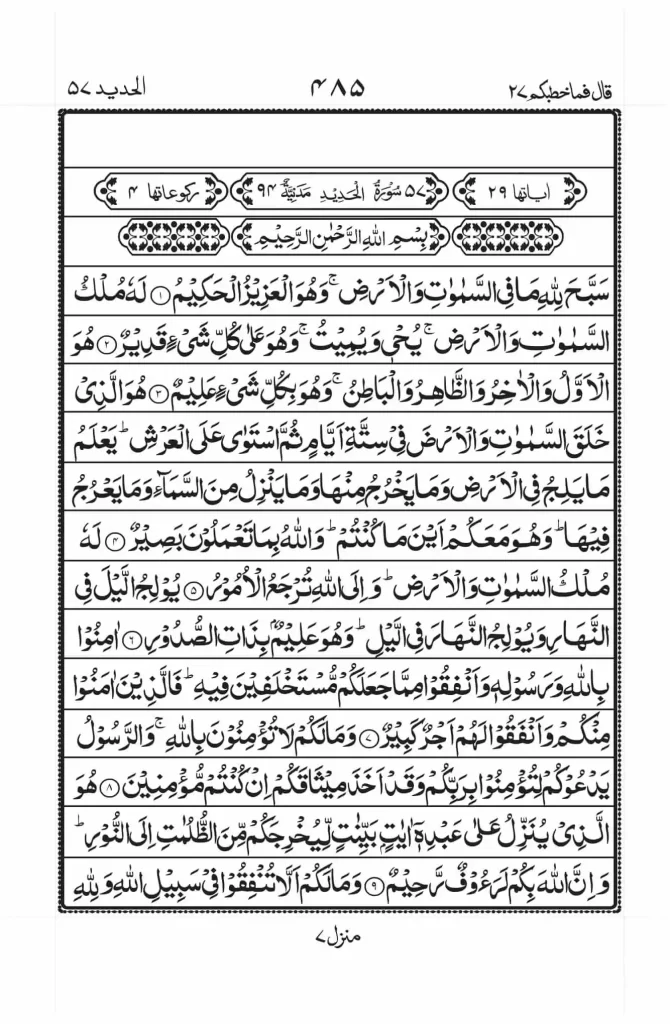 قال فما خطبكم ۲۷ ۴۸۵ الحديد ۵۷
اٰياتها ۲۹ ۵۷ سُوْرَةُ الْحَدِيْدِ مَدَنِيَّةٌ ۹۴ ركوعاتها ۴
بِسْمِ اللهِ الرَّحْمٰنِ الرَّحِيْمِ
سَبَّحَ لِلّٰهِ مَا فِي السَّمٰوٰتِ وَالْاَرْضِ ۚ وَهُوَ الْعَزِيْزُ الْحَكِيْمُ ۱ لَهٗ مُلْكُ
السَّمٰوٰتِ وَالْاَرْضِ ۚ يُحْيٖ وَيُمِيْتُ ۚ وَهُوَ عَلٰى كُلِّ شَيْءٍ قَدِيْرٌ ۲ هُوَ
الْاَوَّلُ وَالْاٰخِرُ وَالظَّاهِرُ وَالْبَاطِنُ ۚ وَهُوَ بِكُلِّ شَيْءٍ عَلِيْمٌ ۳ هُوَ الَّذِيْ
خَلَقَ السَّمٰوٰتِ وَالْاَرْضَ فِيْ سِتَّةِ اَيَّامٍ ثُمَّ اسْتَوٰى عَلَى الْعَرْشِ ؕ يَعْلَمُ
مَا يَلِجُ فِي الْاَرْضِ وَمَا يَخْرُجُ مِنْهَا وَمَا يَنْزِلُ مِنَ السَّمَآءِ وَمَا يَعْرُجُ
فِيْهَا ؕ وَهُوَ مَعَكُمْ اَيْنَ مَا كُنْتُمْ ؕ وَاللهُ بِمَا تَعْمَلُوْنَ بَصِيْرٌ ۴ لَهٗ
مُلْكُ السَّمٰوٰتِ وَالْاَرْضِ ؕ وَاِلَى اللهِ تُرْجَعُ الْاُمُوْرُ ۵ يُوْلِجُ الَّيْلَ فِي
النَّهَارِ وَيُوْلِجُ النَّهَارَ فِي الَّيْلِ ؕ وَهُوَ عَلِيْمٌۢ بِذَاتِ الصُّدُوْرِ ۶ اٰمِنُوْا
بِاللهِ وَرَسُوْلِهٖ وَاَنْفِقُوْا مِمَّا جَعَلَكُمْ مُّسْتَخْلَفِيْنَ فِيْهِ ؕ فَالَّذِيْنَ اٰمَنُوْا
مِنْكُمْ وَاَنْفَقُوْا لَهُمْ اَجْرٌ كَبِيْرٌ ۷ وَمَا لَكُمْ لَا تُؤْمِنُوْنَ بِاللهِ ۚ وَالرَّسُوْلُ
يَدْعُوْكُمْ لِتُؤْمِنُوْا بِرَبِّكُمْ وَقَدْ اَخَذَ مِيْثَاقَكُمْ اِنْ كُنْتُمْ مُّؤْمِنِيْنَ ۸ هُوَ
الَّذِيْ يُنَزِّلُ عَلٰى عَبْدِهٖٓ اٰيٰتٍۭ بَيِّنٰتٍ لِّيُخْرِجَكُمْ مِّنَ الظُّلُمٰتِ اِلَى النُّوْرِ ؕ
وَاِنَّ اللهَ بِكُمْ لَرَءُوْفٌ رَّحِيْمٌ ۹ وَمَا لَكُمْ اَلَّا تُنْفِقُوْا فِيْ سَبِيْلِ اللهِ وَلِلّٰهِ
منزل ۷